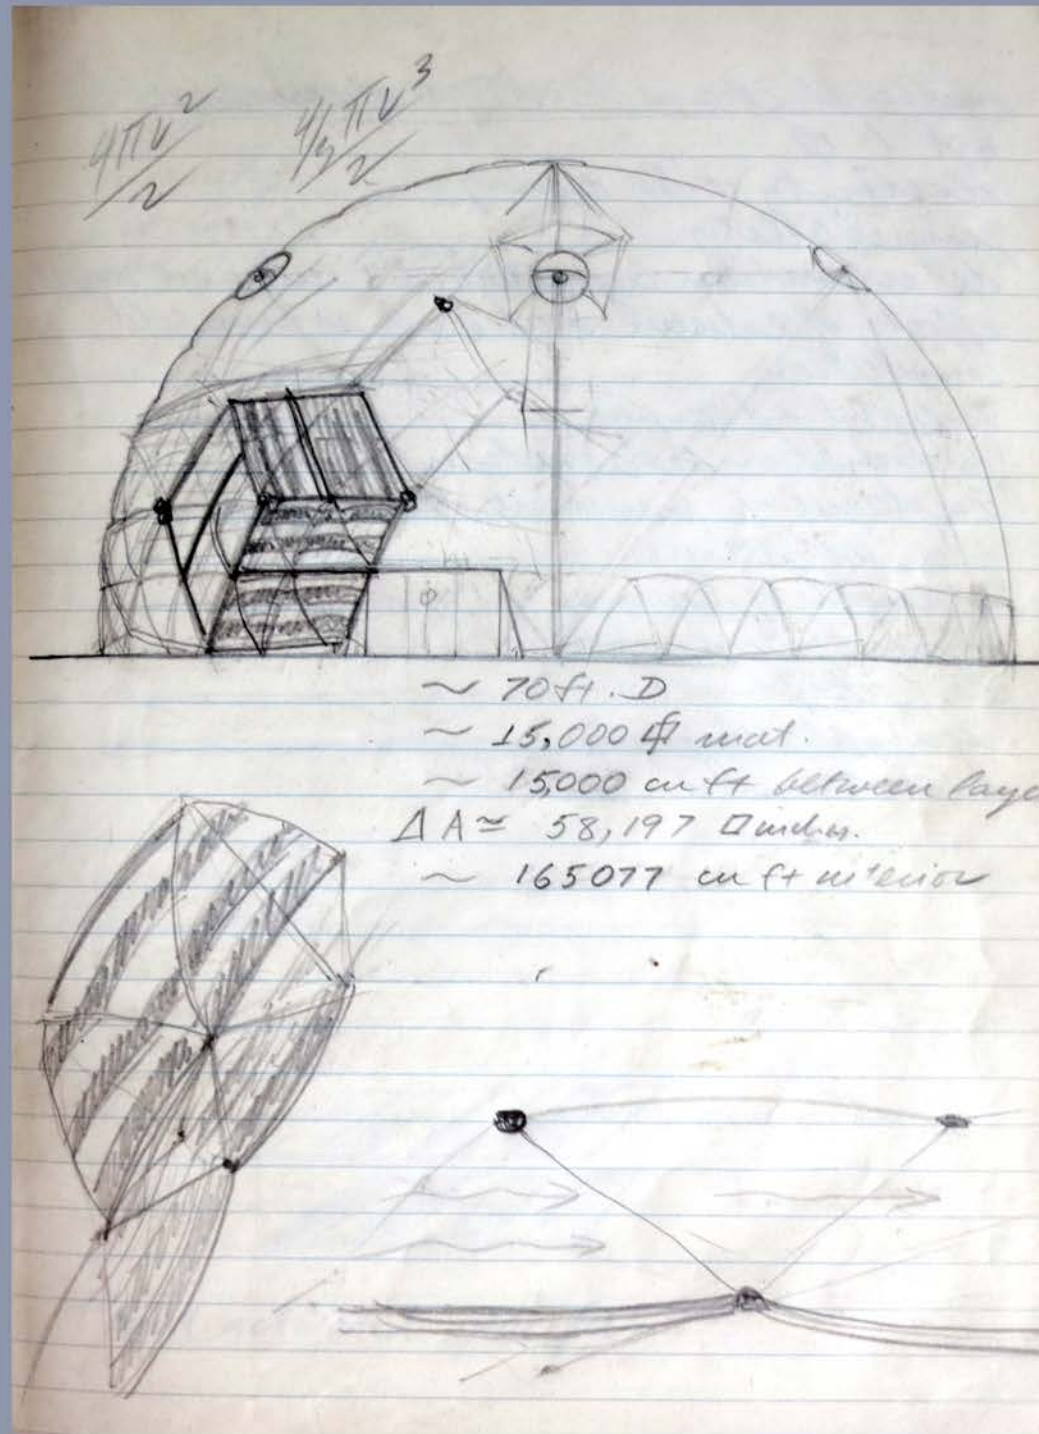 4πr²/2 4/3πr³/2
~ 70 ft. D
~ 15,000 mat.
~ 15,000 cu ft between laye
ΔA ≅ 58,197 □ inches.
~ 165077 cu ft interior